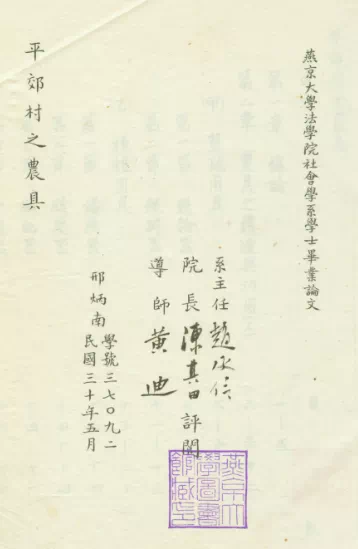 燕京大學法學院社會學系學士畢業論文
系主任 趙承信
院長 陳其田 評閱
導師 黃迪
邢炳南
學號三七〇九二
民國三十年五月
平郊村之農具
燕京大
學圖書
館藏之